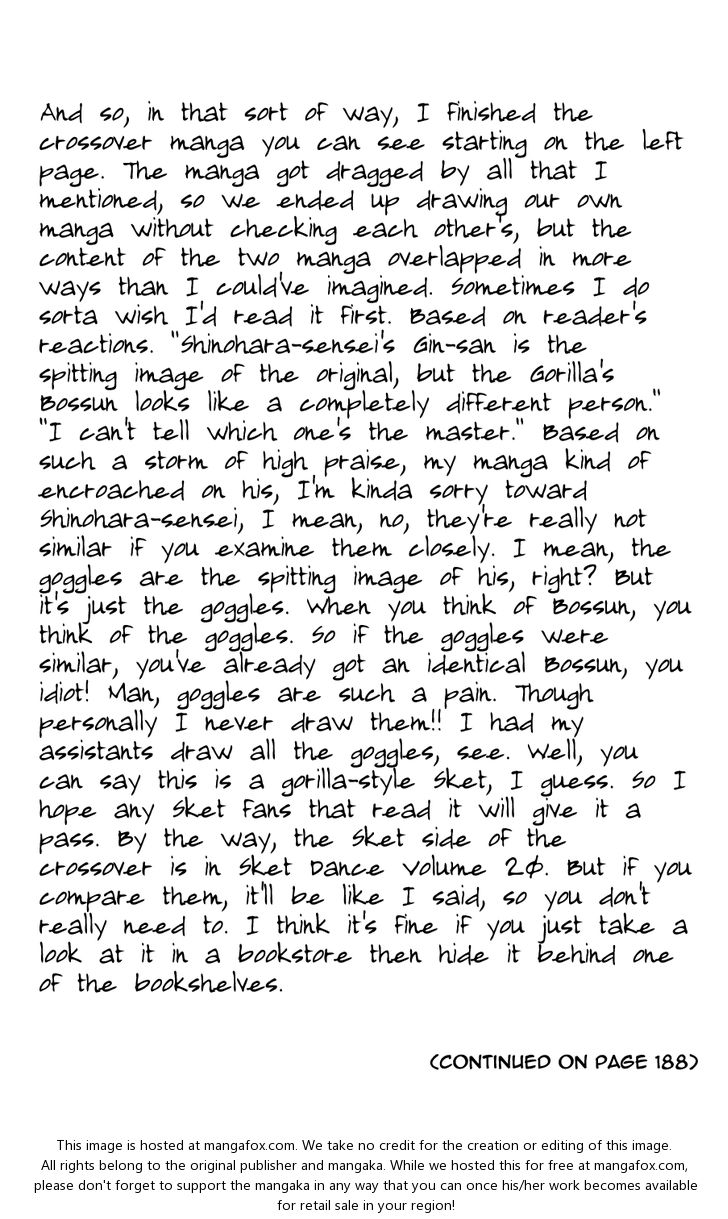 And so, in that sort of way, I finished the
crossover manga you can see starting on the left
page. The manga got dragged by all that I
mentioned, so we ended up drawing our own
manga without checking each other's, but the
content of the two manga overlapped in more
ways than I could've imagined. Sometimes I do
sorta wish I'd read it first. Based on reader's
reactions. "Shinohara-sensei's Gin-san is the
spitting image of the original, but the Gorilla's
Bossun looks like a completely different person."
"I can't tell which one's the master." Based on
such a storm of high praise, my manga kind of
encroached on his, I'm kinda sorry toward
Shinohara-sensei, I mean, no, they're really not
similar if you examine them closely. I mean, the
goggles are the spitting image of his, right? But
it's just the goggles. When you think of Bossun, you
think of the goggles. So if the goggles were
similar, you've already got an identical Bossun, you
idiot! Man, goggles are such a pain. Though
personally I never draw them!! I had my
assistants draw all the goggles, see. Well, you
can say this is a gorilla-style Sket, I guess. So I
hope any Sket fans that read it will give it a
pass. By the way, the Sket side of the
crossover is in Sket Dance Volume 20. But if you
compare them, it'll be like I said, so you don't
really need to. I think it's fine if you just take a
look at it in a bookstore then hide it behind one
of the bookshelves.
(CONTINUED ON PAGE 188)
This image is hosted at mangafox.com. We take no credit for the creation or editing of this image.
All rights belong to the original publisher and mangaka. While we hosted this for free at mangafox.com,
please don't forget to support the mangaka in any way that you can once his/her work becomes available
for retail sale in your region!